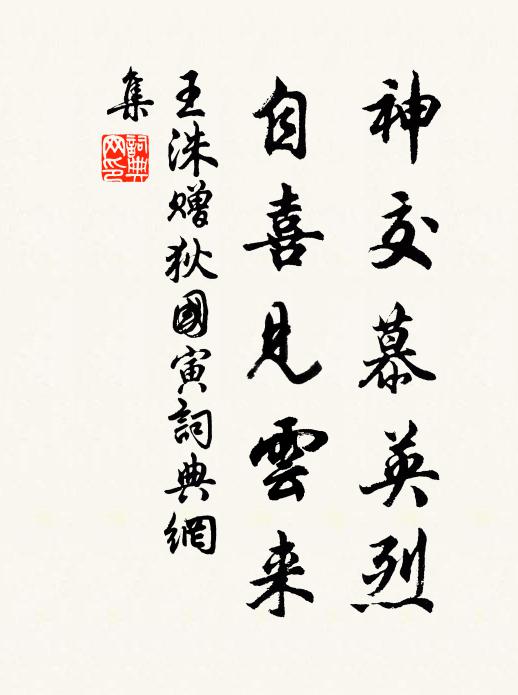 神交慕英烈
自喜見雲来
王洙贈狄國寅詞典網
集
詞典
网印